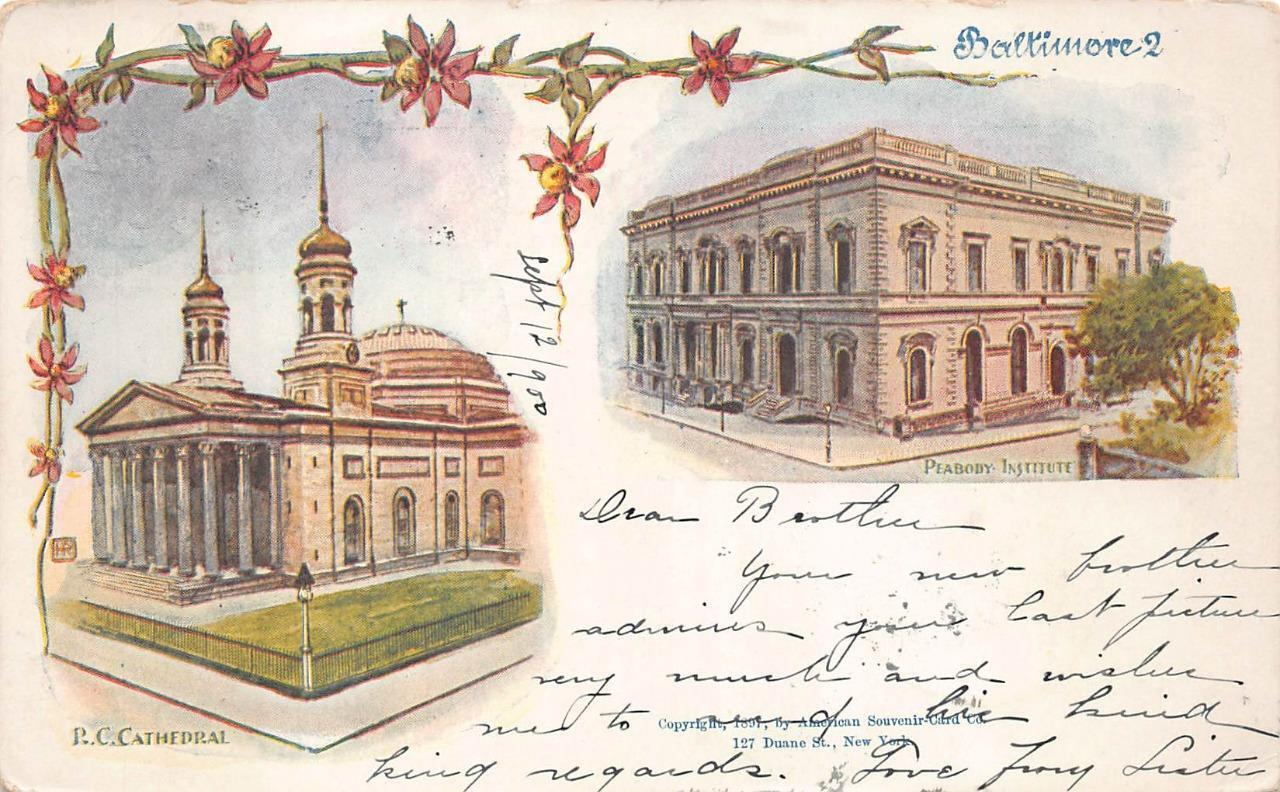 Baltimore 2
Sept 12/900
PEABODY INSTITUTE
R.C. CATHEDRAL
HR
Dear Brother
Your new brother
admires your last picture
very much and wishes
me to send his kind
kind regards. Love from Sister
Copyright, 1897, by American Souvenir-Card Co.
127 Duane St., New York